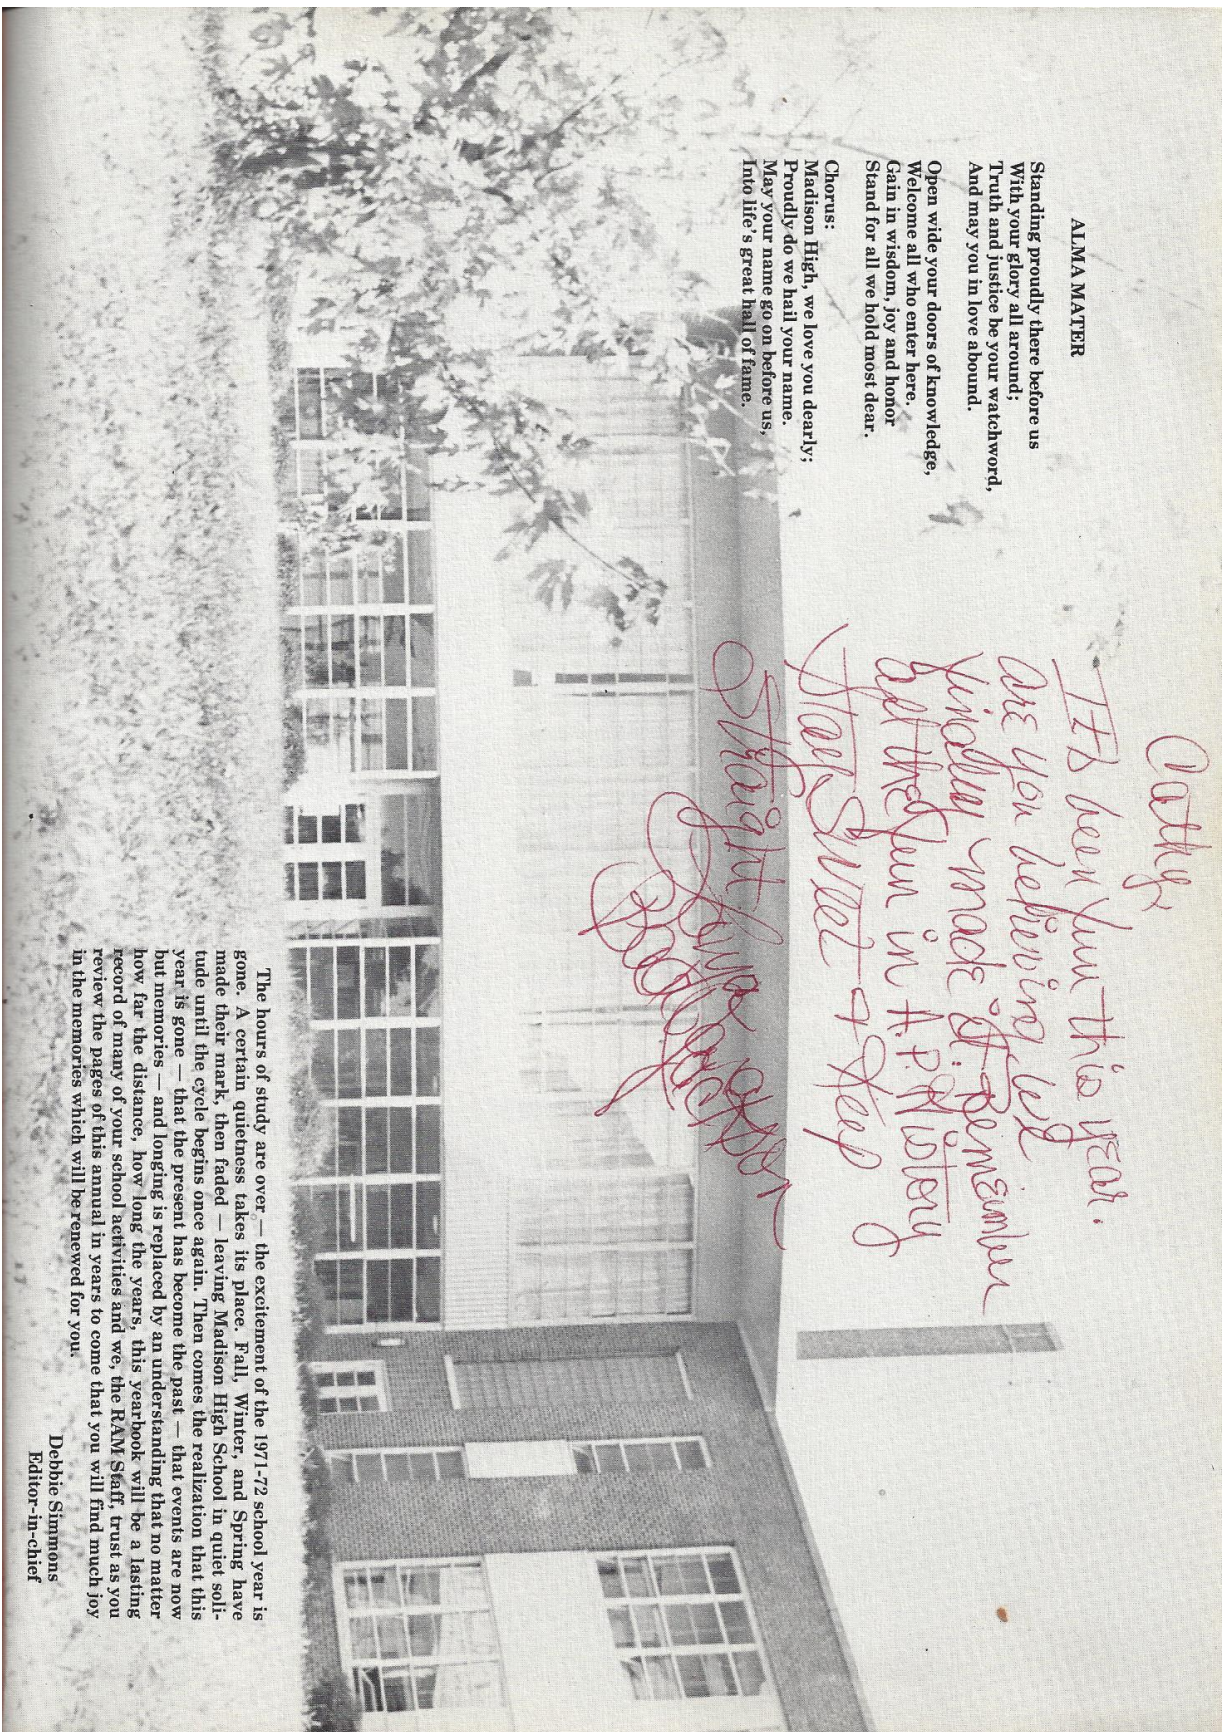 ALMA MATER
Standing proudly there before us
With your glory all around;
Truth and justice be your watchword,
And may you in love abound.
Open wide your doors of knowledge,
Welcome all who enter here.
Gain in wisdom, joy and honor
Stand for all we hold most dear.
Chorus:
Madison High, we love you dearly;
Proudly do we hail your name.
May your name go on before us,
Into life's great hall of fame.
Cathy,
It's been fun this year.
are you believing we
finally made it. Remember
all the fun in A.P. History
Stay Sweet & Keep
Straight
The hours of study are over — the excitement of the 1971-72 school year is
gone. A certain quietness takes its place. Fall, Winter, and Spring have
made their mark, then faded — leaving Madison High School in quiet soli-
tude until the cycle begins once again. Then comes the realization that this
year is gone — that the present has become the past — that events are now
but memories — and longing is replaced by an understanding that no matter
how far the distance, how long the years, this yearbook will be a lasting
record of many of your school activities and we, the RAM Staff, trust as you
review the pages of this annual in years to come that you will find much joy
in the memories which will be renewed for you.
Debbie Simmons
Editor-in-chief